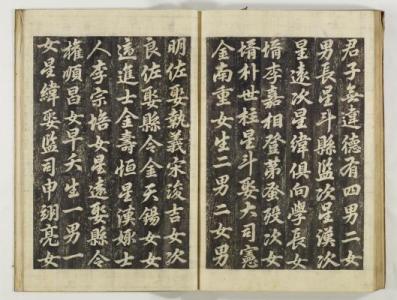 君子無違德有四男二女
男長星斗縣監次星漢次
星遠次星緯俱向學長女
壻李嘉相登第蚤歿次女
壻朴世桂星斗娶大司憲
金南重女生二男二女男
明佐娶執義宋浚吉女次
良佐娶縣令金天錫女女
適進士金壽恒星漢娶士
人李宗培女星遠娶縣令
權順昌女早夭生一男一
女星緯娶監司申翊亮女